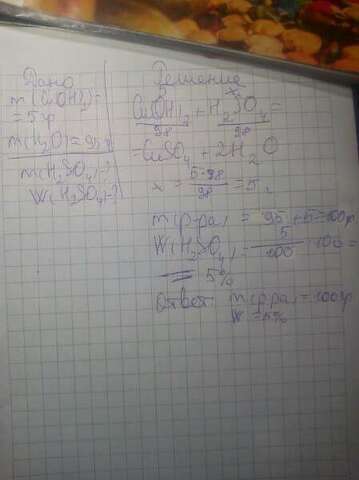 Дано
m(Cu(OH)2)=
=5гр
m(H2O)=95г
m(H2SO4)-?
W(H2SO4)-?
Решение
5 x
Cu(OH)2+H2SO4=
98 98
=CuSO4+2H2O
x=5·98/98=5г
m(р-ра)=95+5=100гр
W(H2SO4)=5/100·100=
=5%
Ответ: m(р-ра)=100гр
W=5%